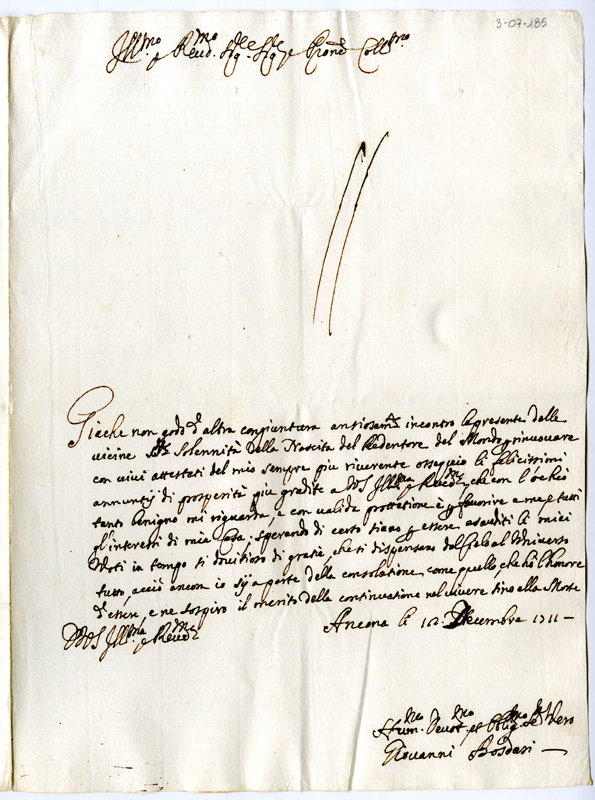 3-07-185
Ill.mo e Reud.mo Sig.re Sig.re e Pron.e Coll.mo
Giache non godo d'altra congiuntura antiosam.te incontro la presente delle
vicine S.te Solennità della Nascita del Redentore del Mondo p rinuouare
con viui attestati del mio sempre piu riuerente ossequio li felicissimi
annuntij di prosperità piu gradite a VS Ill.ma e Reud.ma, che con l'ochio
tanto benigno mi riguarda, e con ualida protettione è p fauorire a me, e tutti
gl'interessi di mia Casa; sperando di certo siano p essere esauditi li miei
Voti in tempo si douitioso di gratie, che si dispensano dal Cielo al Vniuerso
tutto, acciò ancor io sij a parte della consolatione, come quello, che hò l'honore
d'essere, e ne sospiro il merito della continuatione nel uiuere sino alla Morte
D VS Ill.ma e Reud.ma
Ancona li 12. Decembre 1711 -
Hum.mo Deuot.mo et Oblig.mo Se.re Vero
Giouanni Bosdari